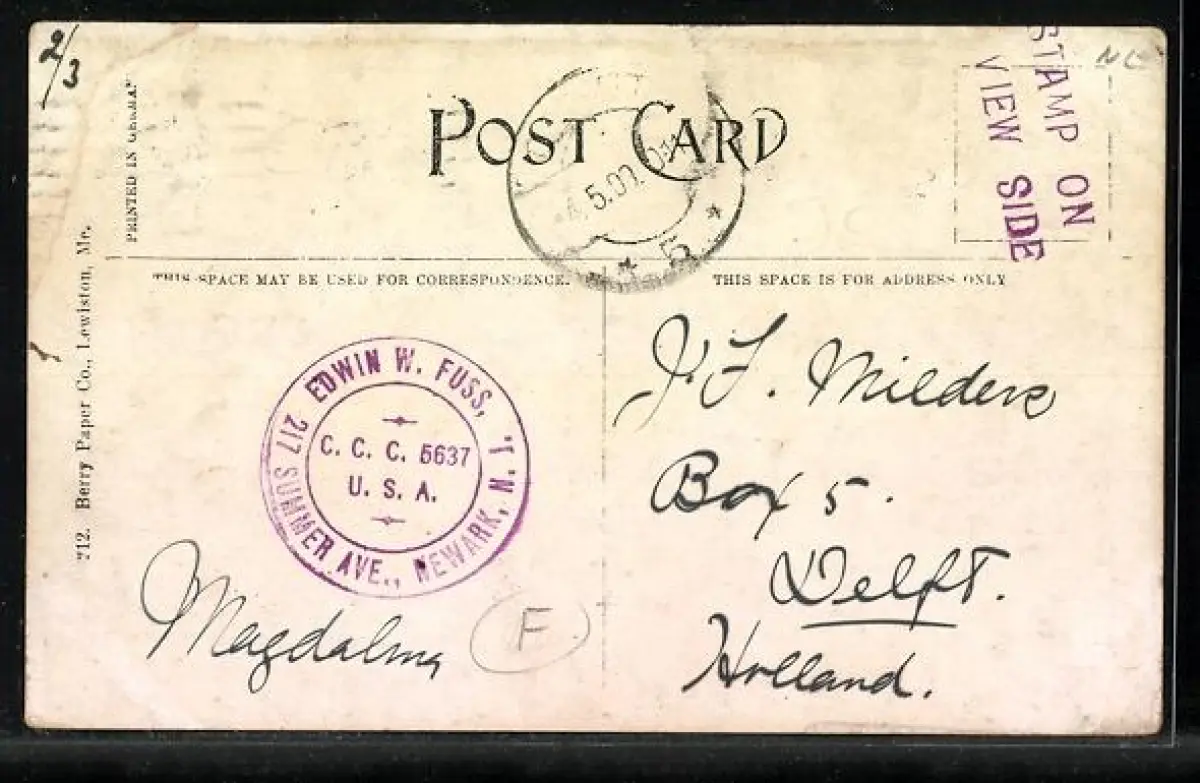 2/3
PRINTED IN GERMA
712. Berry Paper Co., Lewiston, Me.
POST CARD
5.07.
5
STAMP ON
VIEW SIDE
THIS SPACE MAY BE USED FOR CORRESPONDENCE.
THIS SPACE IS FOR ADDRESS ONLY
EDWIN W. FUSS,
217 SUMMER AVE., NEWARK, N.
C. C. C. 5637
U. S. A.
Magdalma
F
J. F. Milders
Box 5.
Delft.
Holland.